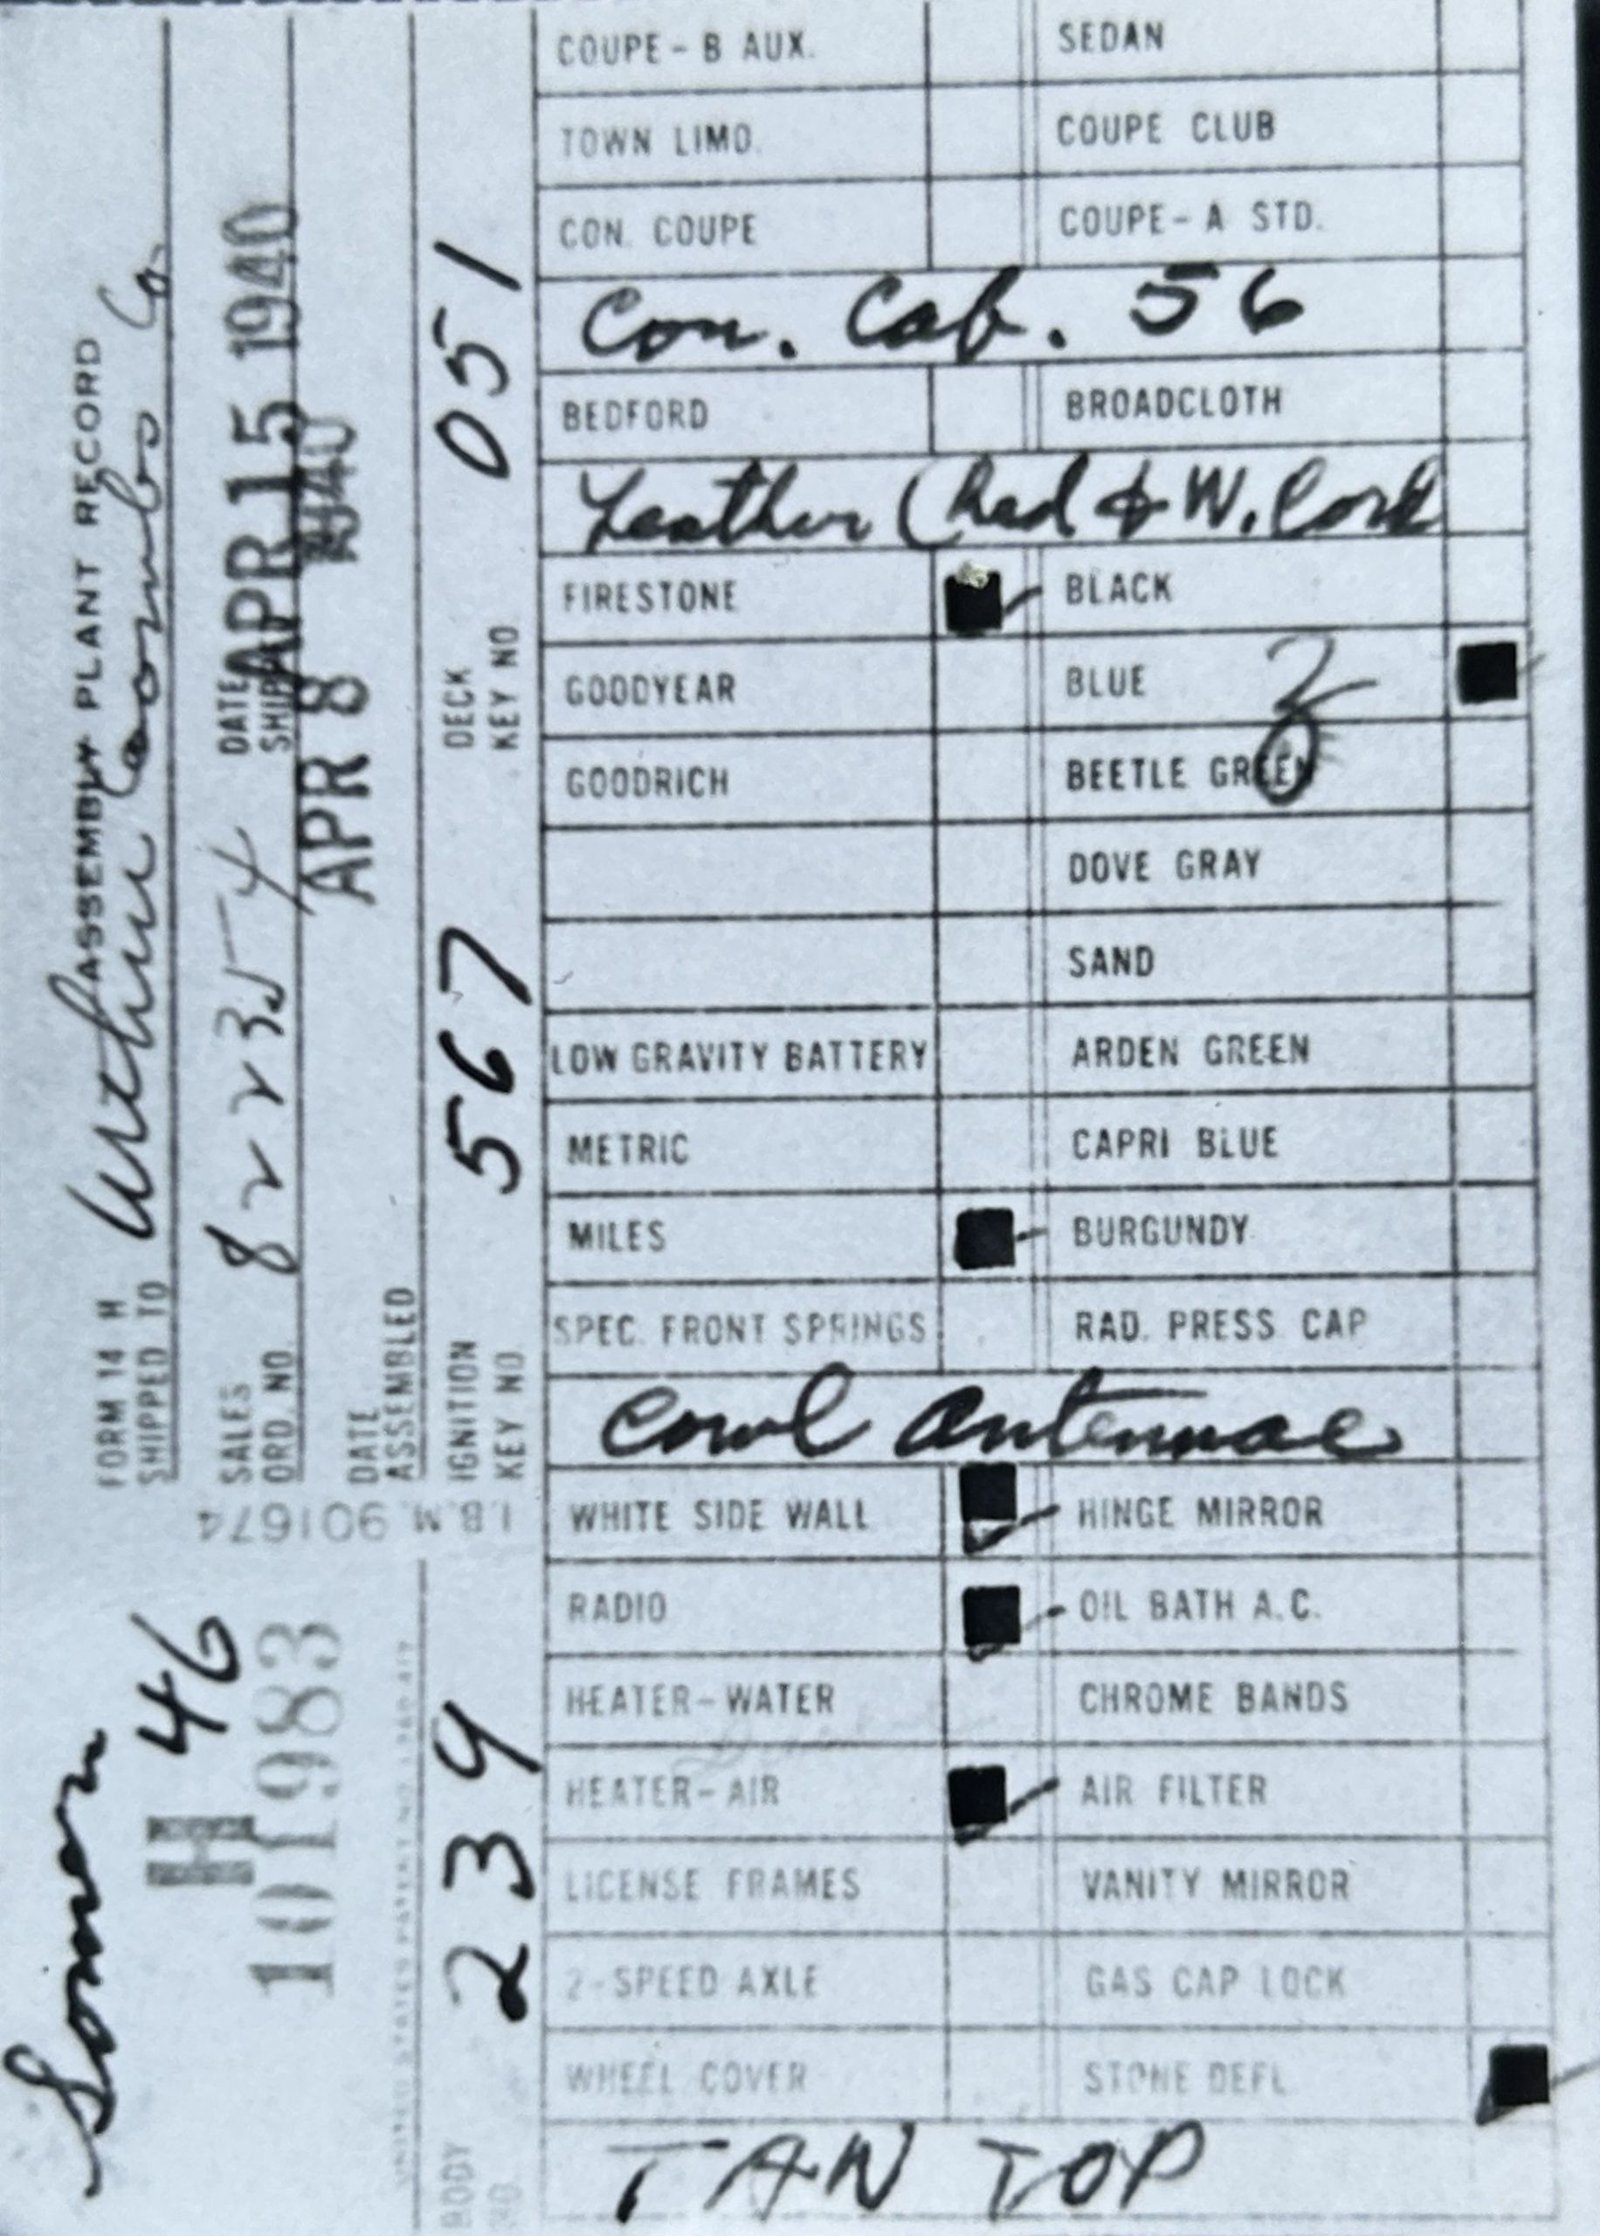 FORM 14 H ASSEMBLY PLANT RECORD
SHIPPED TO Arthur Coombs Co
SALES ORD. NO. 82354
DATE SHIPPED APR 15 1940
DATE ASSEMBLED APR 8 1940
IGNITION KEY NO. 567
DECK KEY NO 051
I.B.M. 901674
46
H
101983
BODY NO. 239
COUPE - B AUX. SEDAN
TOWN LIMO. COUPE CLUB
CON. COUPE COUPE - A STD.
Con. Cab. 56
BEDFORD BROADCLOTH
Leather (Red & W. Cord
FIRESTONE BLACK
GOODYEAR BLUE
GOODRICH BEETLE GREEN
DOVE GRAY
SAND
LOW GRAVITY BATTERY ARDEN GREEN
METRIC CAPRI BLUE
MILES BURGUNDY
SPEC. FRONT SPRINGS RAD. PRESS CAP
Cowl Antennae
WHITE SIDE WALL HINGE MIRROR
RADIO OIL BATH A.C.
HEATER - WATER CHROME BANDS
HEATER - AIR AIR FILTER
LICENSE FRAMES VANITY MIRROR
2-SPEED AXLE GAS CAP LOCK
WHEEL COVER STONE DEFL
TAN TOP